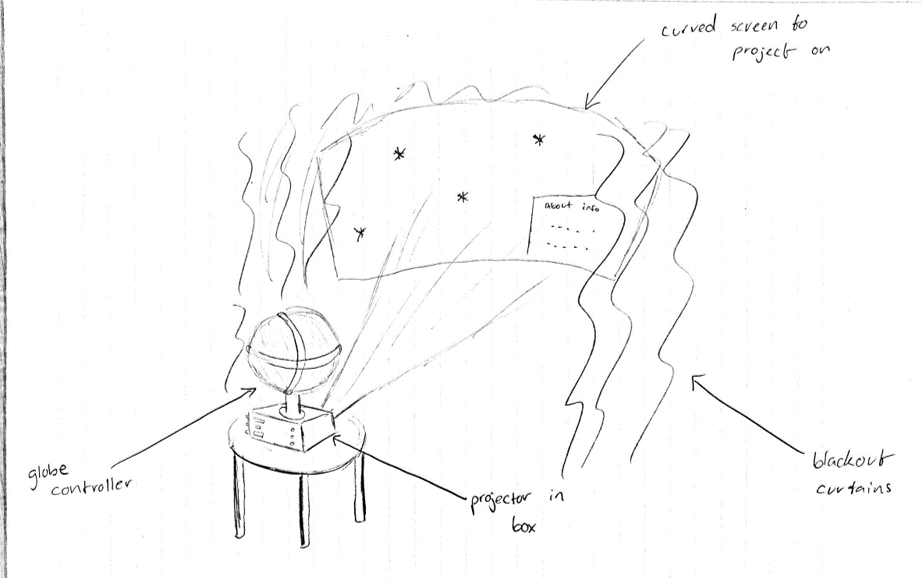 curved screen to
project on
about info
globe
controller
projector in
box
blackout
curtains